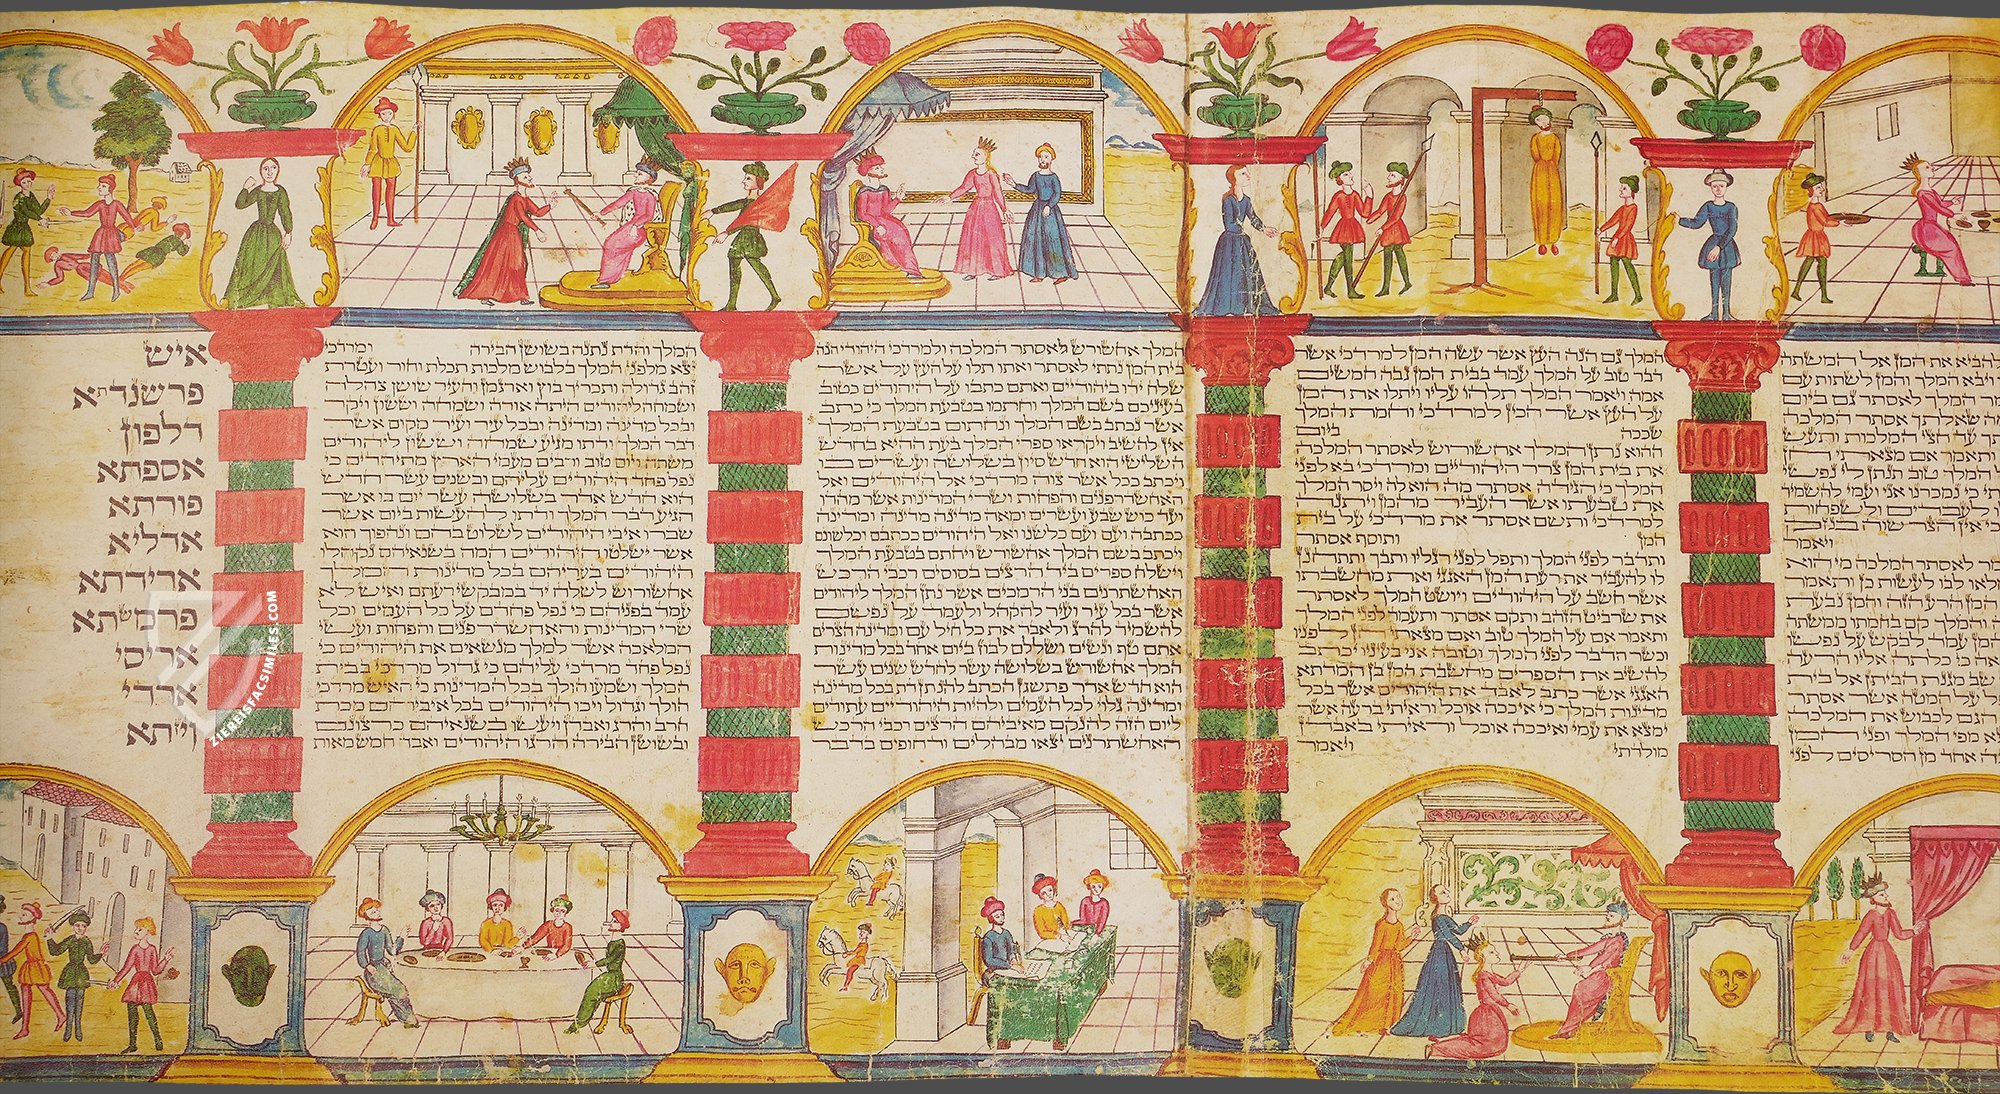 להביא את המן אל המשתה
ויבא המלך והמן לשתות עם
המלך לאסתר גם ביום
שאלתך אסתר המלכה
עד חצי המלכות ותעש
ותאמר אם מצאתי
המלך טוב תנתן לי נפשי
כי נמכרנו אני ועמי להשמיד
לעבדים ולשפחות
כי אין הצר שוה בנזק
ויאמר
לאסתר המלכה מי הוא
מלאו לבו לעשות כן ותאמר
המן הרע הזה והמן נבעת
והמלך קם בחמתו ממשתה
המן עמד לבקש על נפשו
כי כלתה אליו הרעה
שב מגנת הביתן אל בית
על המטה אשר אסתר
הגם לכבוש את המלכה
יצא מפי המלך ופני המן
אחד מן הסריסים לפני
המלך גם הנה העץ אשר עשה המן למרדכי אשר
דבר טוב על המלך עמד בבית המן גבה חמשים
אמה ויאמר המלך תלהו עליו ויתלו את המן
על העץ אשר הכין למרדכי וחמת המלך
שככה ביום
ההוא נתן המלך אחשורוש לאסתר המלכה
את בית המן צרר היהודיים ומרדכי בא לפני
המלך כי הגידה אסתר מה הוא לה ויסר המלך
את טבעתו אשר העביר מהמן ויתנה
למרדכי ותשם אסתר את מרדכי על בית
המן ותוסף אסתר
ותדבר לפני המלך ותפל לפני רגליו ותבך ותתחנן
לו להעביר את רעת המן האגגי ואת מחשבתו
אשר חשב על היהודיים ויושט המלך לאסתר
את שרביט הזהב ותקם אסתר ותעמד לפני המלך
ותאמר אם על המלך טוב ואם מצאתי חן לפניו
וכשר הדבר לפני המלך וטובה אני בעיניו יכתב
להשיב את הספרים מחשבת המן בן המדתא
האגגי אשר כתב לאבד את היהודים אשר בכל
מדינות המלך כי איככה אוכל וראיתי ברעה אשר
ימצא את עמי ואיככה אוכל וראיתי באבדן
מולדתי ויאמר
המלך אחשורש לאסתר המלכה ולמרדכי היהודי הנה
בית המן נתתי לאסתר ואתו תלו על העץ על אשר
שלח ידו ביהודיים ואתם כתבו על היהודים כטוב
בעיניכם בשם המלך וחתמו בטבעת המלך כי כתב
אשר נכתב בשם המלך ונחתום בטבעת המלך
אין להשיב ויקראו ספרי המלך בעת ההיא בחדש
השלישי הוא חדש סיון בשלושה ועשרים בו
ויכתב ככל אשר צוה מרדכי אל היהודים ואל
האחשדרפנים והפחות ושרי המדינות אשר מהדו
ועד כוש שבע ועשרים ומאה מדינה מדינה ומדינה
ככתבה ועם ועם כלשנו ואל היהודים ככתבם וכלשונם
ויכתב בשם המלך אחשורש ויחתם בטבעת המלך
וישלח ספרים ביד הרצים בסוסים רכבי הרכש
האחשתרנים בני הרמכים אשר נתן המלך ליהודים
אשר בכל עיר ועיר להקהל ולעמד על נפשם
להשמיד להרג ולאבד את כל חיל עם ומדינה הצרים
אתם טף ונשים ושללם לבוז ביום אחד בכל מדינות
המלך אחשורוש בשלושה עשר לחדש שנים עשר
הוא חדש אדר פתשגן הכתב להנתן דת בכל מדינה
ומדינה גלוי לכל העמים ולהיות היהודיים עתודים
ליום הזה להנקם מאיביהם הרצים רכבי הרכש
האחשתרנים יצאו מבהלים ודחופים בדבר
המלך והדת נתנה בשושן הבירה ומרדכי
יצא מלפני המלך בלבוש מלכות תכלת וחור ועטרת
זהב גדולה ותכריך בוץ וארגמן והעיר שושן צהלה
ושמחה ליהודים היתה אורה ושמחה וששון ויקר
ובכל מדינה ומדינה ובכל עיר ועיר מקום אשר
דבר המלך ודתו מגיע שמחה וששון ליהודים
משתה ויום טוב ורבים מעמי הארץ מתיהדים כי
נפל פחד היהודים עליהם ובשנים עשר חדש
הוא חדש אדר בשלושה עשר יום בו אשר
הגיע דבר המלך ודתו להעשות ביום אשר
שברו איבי היהודים לשלוט בהם ונהפוך הוא
אשר ישלטו היהודים המה בשנאיהם נקהלו
היהודים בעריהם בכל מדינות המלך
אחשורוש לשלח יד במבקשי רעתם ואיש לא
עמד בפניהם כי נפל פחדם על כל העמים וכל
שרי המדינות והאחשדרפנים והפחות ועשי
המלאכה אשר למלך מנשאים את היהודים כי
נפל פחד מרדכי עליהם כי גדול מרדכי בבית
המלך ושמעו הולך בכל המדינות כי האיש מרדכי
הולך וגדול ויכו היהודים בכל איביהם מכת
חרב והרג ואבדן ויעשו בשנאיהם כרצונם
ובשושן הבירה הרגו היהודים ואבד חמש מאות
איש
פרשנדתא
דלפון
אספתא
פורתא
אדליא
ארידתא
פרמשתא
אריסי
ארדי
ויזתא
ZIEREIS FACSIMILES.COM